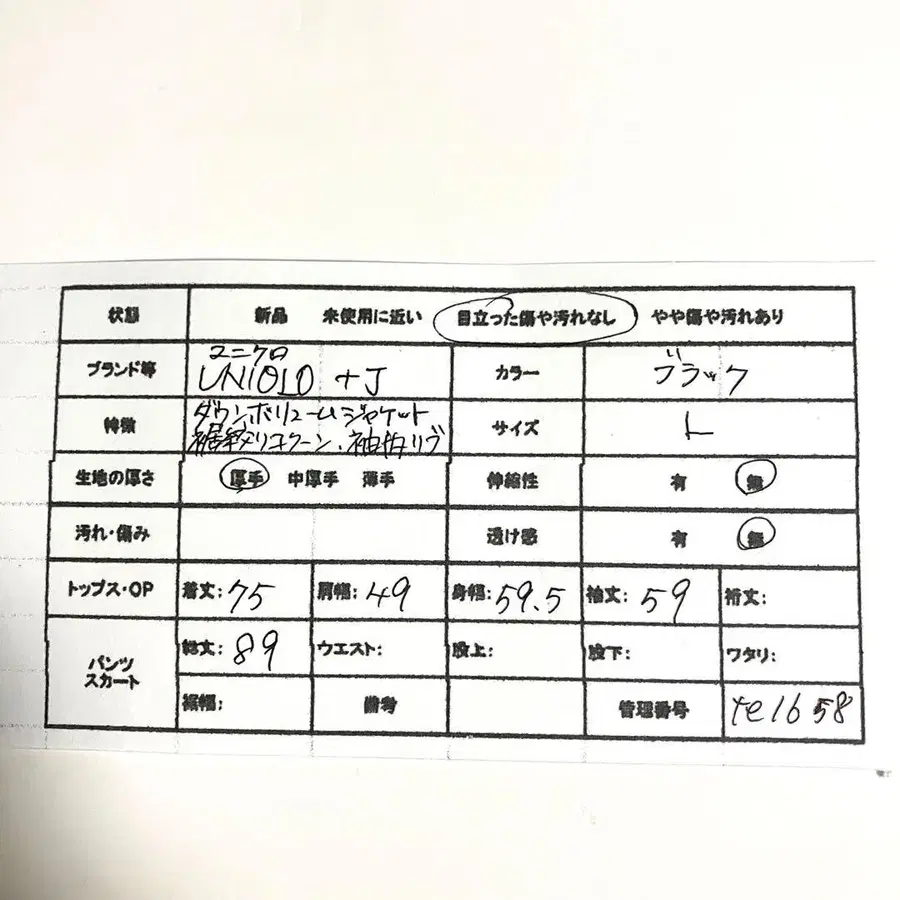 状態 新品 未使用に近い 目立った傷や汚れなし やや傷や汚れあり
ブランド等 ユニクロ UNIQLO +J カラー ブラック
特徴 ダウンボリュームジャケット サイズ L
裾絞りコクーン、袖内リブ
生地の厚さ 厚手 中厚手 薄手 伸縮性 有 無
汚れ・傷み 透け感 有 無
トップス・OP 着丈:75 肩幅:49 身幅:59.5 袖丈:59 裄丈:
パンツ スカート 総丈:89 ウエスト: 股上: 股下: ワタリ:
裾幅: 備考 管理番号 te1658